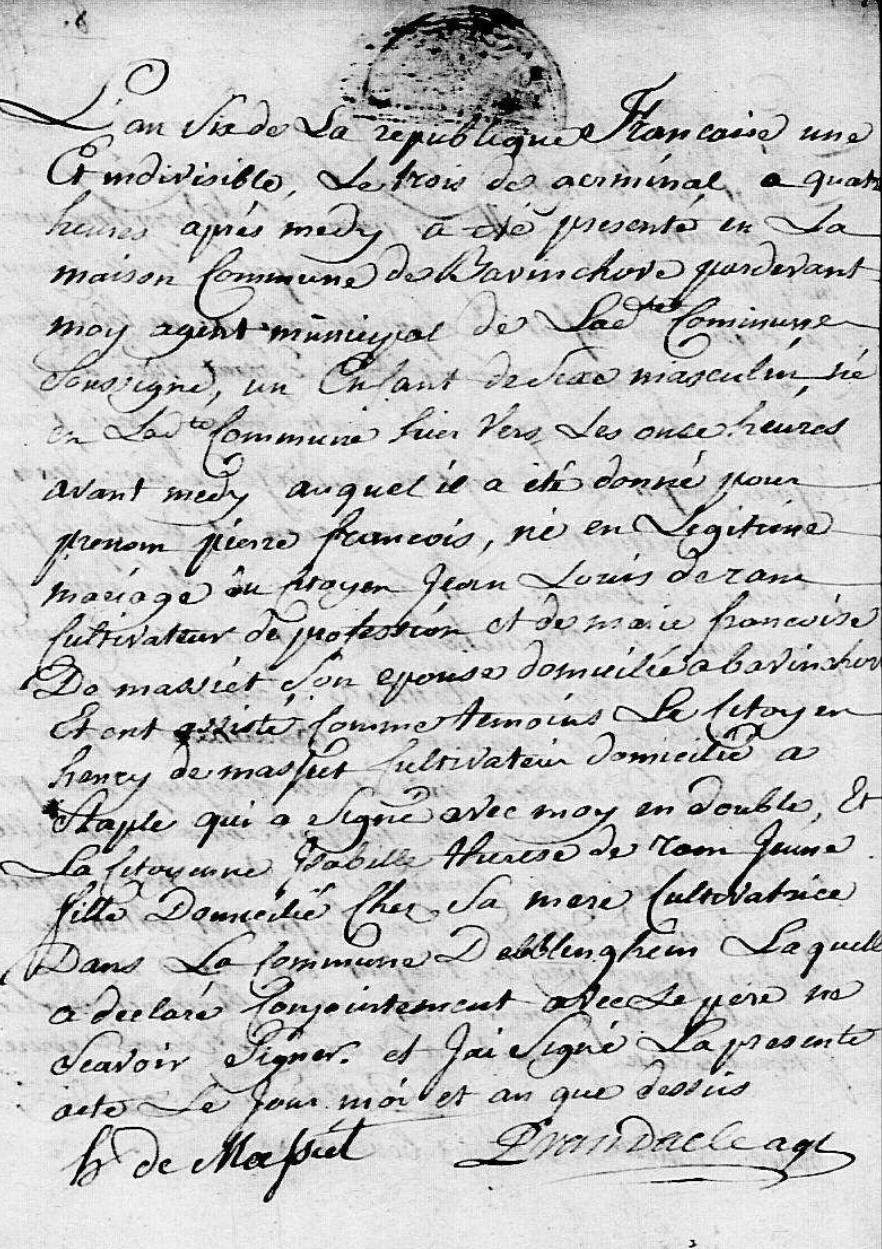 L'an six de La republique Francaise une
Et indivisible, Le trois de germinal a quatre
heures aprés medy a été presenté en La
maison Commune de Bavinchove pardevant
moy agent municipal de Ladte Commune
Soussigné, un Enfant de Sexe masculin né
en Ladte Commune hier vers Les onse heures
avant medy auquel il a été donné pour
prenom pierre francois, né en Legitime
mariage du Citoyen Jean Louis de ram
Cultivateur de profession et de marie francoise
De massiet Son epouse domiciliée a bavinchov
Et ont assisté Comme temoins Le Citoyen
henry de massiet Cultivateur domicilié a
Staple qui a Signé avec moy en double, Et
La Citoyenne Isabille therese de ram Jeune
fille Domicilié Chez Sa mere Cultivatrice
Dans La Commune Debblinghem Laquelle
a declaré Conjointement avec Le pere ne
Scavoir Signer. et Jai Signé La presente
acte Le Jour moi et an que dessus
h de Massiet agt